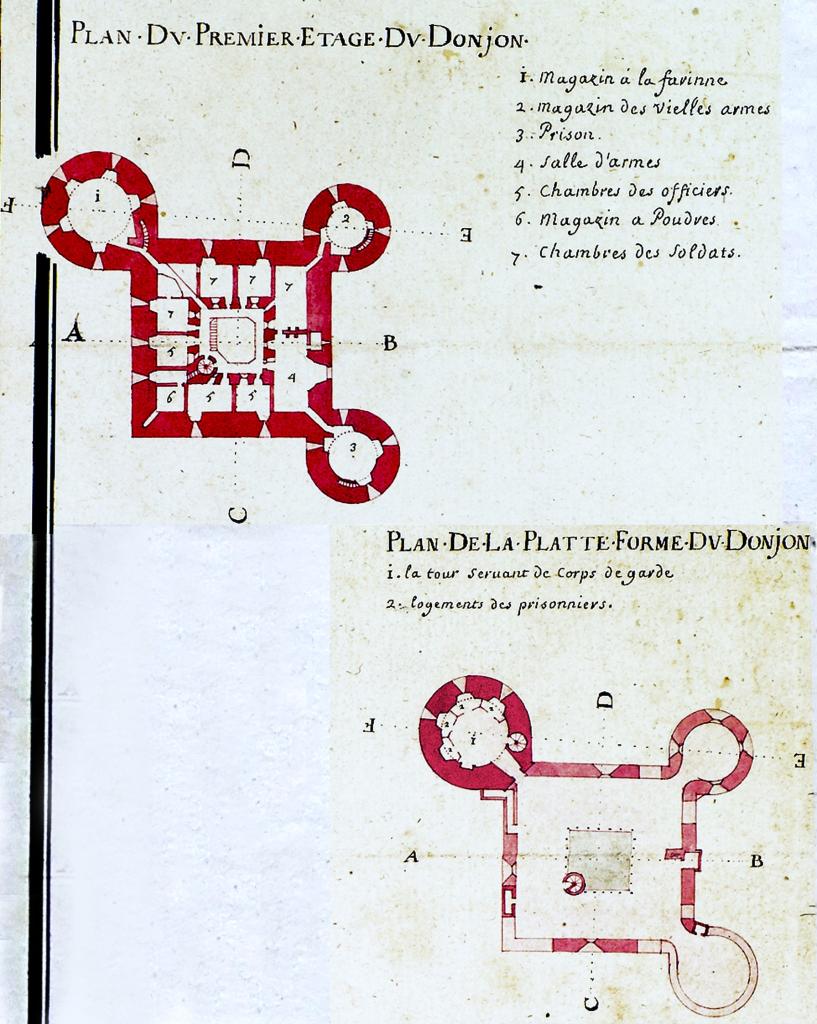 PLAN·DV·PREMIER·ETAGE·DV·DONJON·
1. Magazin a la farinne
2. magazin des vielles armes
3. Prison.
4. Salle d'armes
5. Chambres des officiers.
6. Magazin a Poudres
7. Chambres des Soldats.
D
F
E
1
2
7 7 7
7
A
B
5
4
6 5 5
3
C
PLAN·DE·LA·PLATTE·FORME·DV·DONJON
1. la tour Servant de Corps de garde
2. logements des prisonniers.
D
F
E
2 2 2
1
2
A
B
C